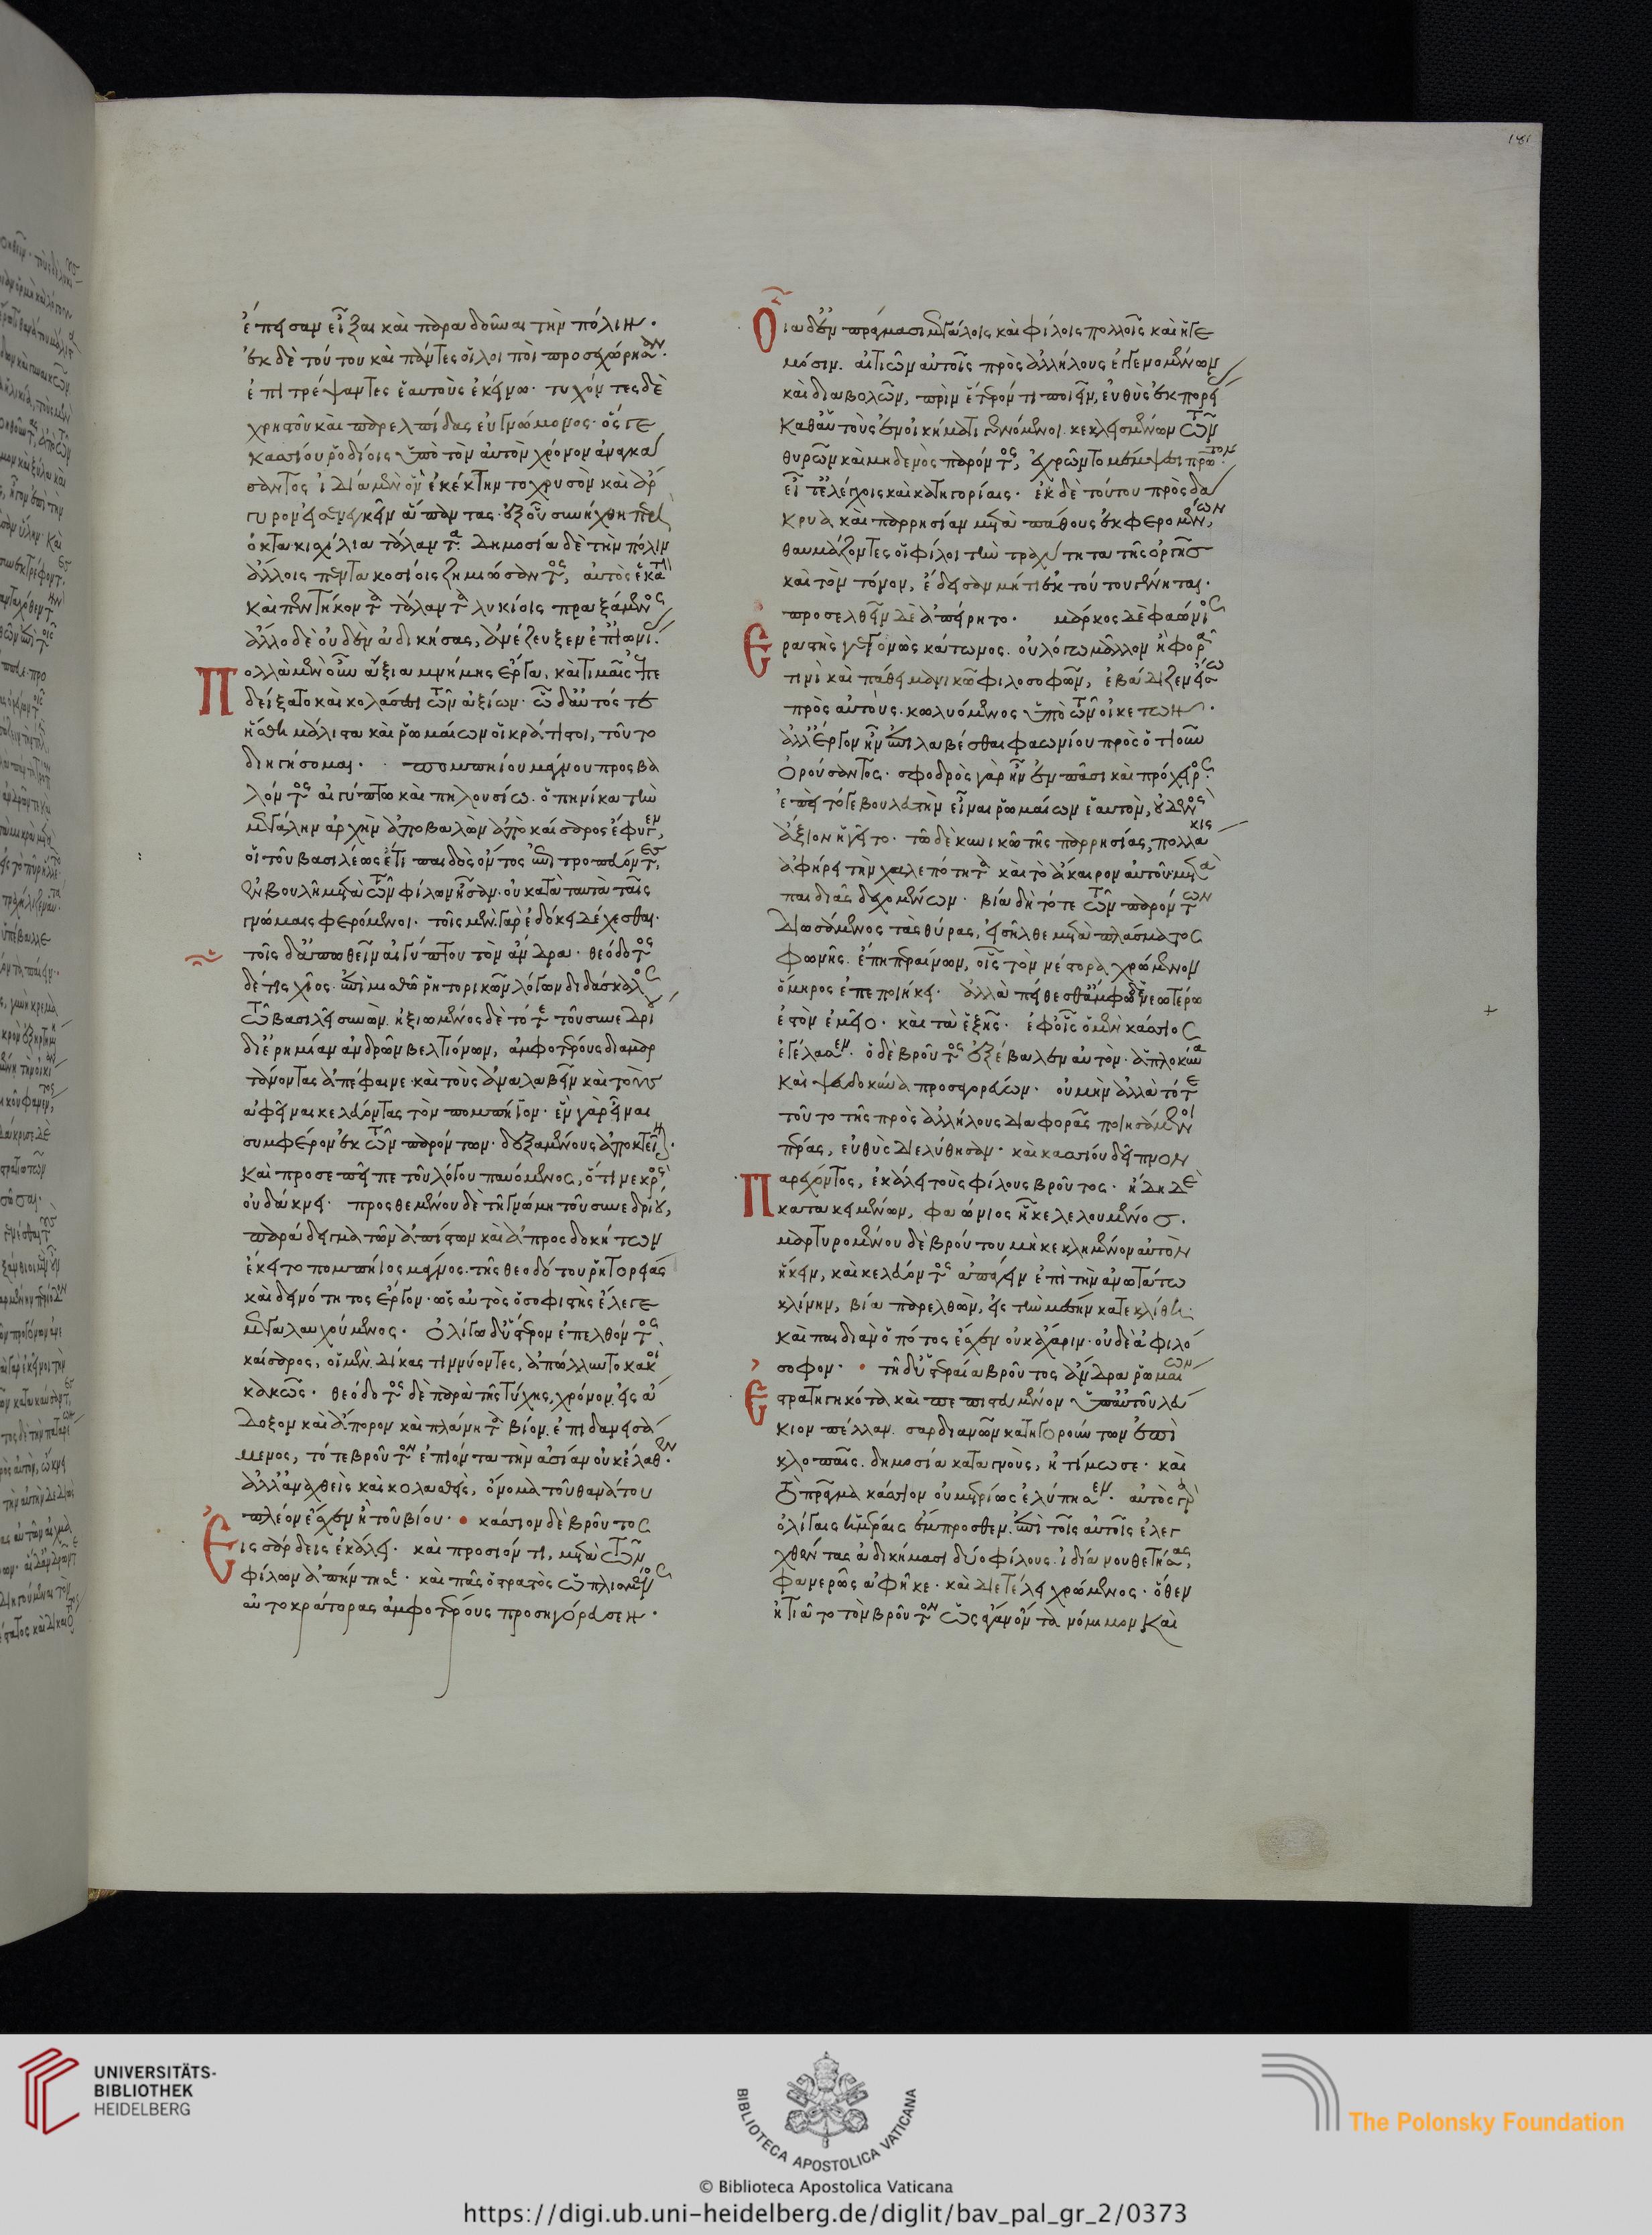 ἔπεισαν εἶξαι καὶ παραδοῦναι τὴν πόλιν.
ἐκ δὲ τούτου καὶ πάντες οἱ λοιποὶ προσεχώρησαν.
ἐπιτρέψαντες ἑαυτοὺς ἐκείνω· τυχόντες δὲ
χρηστοῦ καὶ παρελπίδας εὐγνώμονος· ὅς γε
κασσίου ῥοδίοις ὑπὸ τὸν αὐτὸν χρόνον ἀναγκα
σαντος ἰδία μὲν ὃν ἐκέκτηντο χρυσὸν καὶ ἄρ
γυρον εἰσενεγκεῖν ἅπαντας. ἐξ οὗ συνήχθη περὶ
ὀκτακισχίλια τάλαντα. δημοσία δὲ τὴν πόλιν
ἄλλοις πεντακοσίοις ζημιώσαντος, αὐτὸς ἑκατὸν
καὶ πεντήκοντα τάλαντα λυκίοις πραξάμενος
ἄλλο δὲ οὐδὲν ἀδικήσας, ἀνέζευξεν ἐπ' ἰωνίας.
Πολλὰ μὲν οὖν ἄξια μνήμης ἔργα, καὶ τιμαῖς ἀπε
δείξατο καὶ κολάσεσι τῶν ἀξίων· ὧ δ' αὐτός τε
ἥσθη μάλιστα καὶ ῥωμαίων οἱ κράτιστοι, τοῦτο
διηγήσομαι. πομπηίου μάγνου προσβα
λόντος αἰγύπτω καὶ πηλουσίω. ὁπηνίκα τὴν
μεγάλην ἀρχὴν ἀποβαλὼν ἀπὸ καίσαρος ἔφυγεν,
οἱ τοῦ βασιλέως ἔτι παιδὸς ὄντος ἐπιτροπεύοντες,
ἐν βουλῆ μετὰ τῶν φίλων ἦσαν. οὐ κατὰ ταυτὰ ταῖς
γνώμαις φερόμενοι. τοῖς μὲν γὰρ ἐδόκει δέχεσθαι.
τοῖς δ' ἀπωθεῖν αἰγύπτου τὸν ἄνδρα· θεόδοτος
δέ τις χῖος. ἐπὶ μισθῶ ῥητορικῶν λόγων διδάσκαλος
τῶ βασιλεῖ συνών. ἠξιωμένος δὲ τότε τοῦ συνεδρί
δι' ἐρημίαν ἀνδρῶν βελτιόνων, ἀμφοτέρους διαμαρ
τάνοντας ἀπέφαινε· καὶ τοὺς ἀναλαβεῖν καὶ τοὺς
ἀφεῖναι κελεύοντας τὸν πομπήιον. ἓν γὰρ εἶναι
συμφέρον ἐκ τῶν παρόντων. δεξαμένους ἀποκτεῖναι.
καὶ προσεπεῖπε τοῦ λόγου παυόμενος, ὅτι νεκρὸς
οὐ δάκνει. προσθεμένου δὲ τῆ γνώμη τοῦ συνεδρίου,
παράδειγμα τῶν ἀπίστων καὶ ἀπροσδοκήτων
ἔκειτο πομπήιος μάγνος. τῆς θεοδότου ῥητορείας
καὶ δεινότητος ἔργον. ὡς αὐτὸς ὁ σοφιστὴς ἔλεγε
μεγαλαυχούμενος. Ὀλίγω δ' ὕστερον ἐπελθόντος
καίσαρος, οἱ μὲν δίκας τιννύοντες, ἀπώλλυντο κακοὶ
κακῶς. θεόδοτος δὲ παρὰ τῆς τύχης, χρόνον εἰς ἄ
δοξον καὶ ἄπορον καὶ πλάνητα βίον. ἐπιδανεισά
μενος, τότε βροῦτον ἐπιόντα τὴν ἀσίαν οὐκ ἔλαθεν.
ἀλλ' ἀναχθεὶς καὶ κολασθεὶς, ὄνομα τοῦ θανάτου
πλέον ἔσχεν ἢ τοῦ βίου. κάσσιον δὲ βροῦτος
Εἰς σάρδεις ἐκάλει. καὶ προσιόντι, μετὰ τῶν
φίλων ἀπήντησε. καὶ πᾶς ὁ στρατὸς ὡπλισμένος
αὐτοκράτορας ἀμφοτέρους προσηγόρευσεν.
Οἷα δ' ἐν πράγμασι μεγάλοις καὶ φίλοις πολλοῖς καὶ ἡγε
μόσιν. αἰτιῶν αὐτοῖς πρὸς ἀλλήλους ἐγγενομένων
καὶ διαβολῶν, πρὶν ἕτερόν τι ποιεῖν, εὐθὺς ἐκ πορεί
καθ' αὑτοὺς ἐν οἰκήματι γενόμενοι. κεκλεισμένων τῶν
θυρῶν καὶ μηδενὸς παρόντος, ἐχρῶντο μέμψεσι πρῶτον.
εἶτ' ἐλέγχοις καὶ κατηγορίαις. ἐκ δὲ τούτου πρὸς δα
κρυα καὶ παρρησίαν μετὰ πάθους ἐκφερομένων,
θαυμάζοντες οἱ φίλοι τὴν τραχύτητα τῆς ὀργῆς
καὶ τὸν τόνον, ἔδεισαν μή τι ἐκ τούτου γένηται.
προσελθεῖν δὲ ἀπείρητο. μάρκος δὲ φαώνιος
Ἐραστὴς γεγονὼς κάτωνος. οὐ λόγω μᾶλλον ἢ φορᾶ
τινὶ καὶ πάθει μανικῶ φιλοσοφῶν, ἐβάδιζεν εἴσω
πρὸς αὐτούς. κωλυόμενος ὑπὸ τῶν οἰκετῶν.
ἀλλ' ἔργον ἦν ἐπιλαβέσθαι φαωνίου πρὸς ὁτιοῦν
ὀρούσαντος. σφοδρὸς γὰρ ἦν ἐν πᾶσι καὶ πρόχειρος.
ἐπεὶ τό γε βουλευτὴν εἶναι ῥωμαίων ἑαυτὸν, οὐδενὸς
ἄξιον ἡγεῖτο. τῶ δὲ κυνικῶ τῆς παρρησίας, πολλάκις
ἀφήρει τὴν χαλεπότητα καὶ τὸ ἄκαιρον αὐτοῦ μετὰ
παιδιᾶς δεχομένων. βία δὴ τότε τῶν παρόντων
διωσάμενος τὰς θύρας, εἰσῆλθε μετὰ πλάσματος
φωνῆς. ἔπη περαίνων, οἷς τὸν νέστορα χρώμενον
ὅμηρος ἐπεποιήκει. ἀλλὰ πείθεσθ' ἄμφω δὲ νεωτέρω
ἐστὸν ἐμεῖο. καὶ τὰ ἑξῆς. ἐφ' οἷς ὁ μὲν κάσσιος
ἐγέλασεν. ὁ δὲ βροῦτος ἐξέβαλεν αὐτὸν. ἁπλοκύνα
καὶ ψευδοκύνα προσαγορεύων. οὐ μὴν ἀλλὰ τότε
τοῦτο τῆς πρὸς ἀλλήλους διαφορᾶς ποιησάμενοι
πέρας, εὐθὺς διελύθησαν. καὶ κασσίου δεῖπνον
Παρέχοντος, ἐκάλει τοὺς φίλους βροῦτος. ἤδη δὲ
κατακειμένων, φαώνιος ἧκε λελουμένος.
μαρτυρομένου δὲ βρούτου μὴ κεκλημένον αὐτὸν
ἥκειν, καὶ κελεύοντος ἀπάγειν ἐπὶ τὴν ἀνωτάτω
κλίνην, βία παρελθὼν, εἰς τὴν μέσην κατεκλίθη.
καὶ παιδιὰν ὁ πότος ἔσχεν οὐκ ἄχαριν. οὐδὲ ἀφιλό
σοφον. τῆ δ' ὑστεραία βροῦτος ἄνδρα ῥωμαίων
Ἐστρατηγηκότα καὶ πεπιστευμένον ὑπ' αὐτοῦ λεύ
κιον πέλλαν. σαρδιανῶν κατηγορούντων ἐπὶ
κλοπαῖς. δημοσία καταγνοὺς, ἠτίμωσε. καὶ
τὸ πρᾶγμα κάσσιον οὐ μετρίως ἐλύπησεν. αὐτὸς γὰρ
ὀλίγαις ἡμέραις ἔμπροσθεν. ἐπὶ τοῖς αὐτοῖς ἐλεγ
χθέντας ἀδικήμασι δύο φίλους. ἰδία νουθετήσας,
φανερῶς ἀφῆκε. καὶ διετέλει χρώμενος. ὅθεν
ἠτιᾶτο τὸν βροῦτον ὡς ἄγαν ὄντα νόμιμον καὶ
181
UNIVERSITÄTS-
BIBLIOTHEK
HEIDELBERG
BIBLIOTECA APOSTOLICA VATICANA
The Polonsky Foundation
© Biblioteca Apostolica Vaticana
https://digi.ub.uni-heidelberg.de/diglit/bav_pal_gr_2/0373